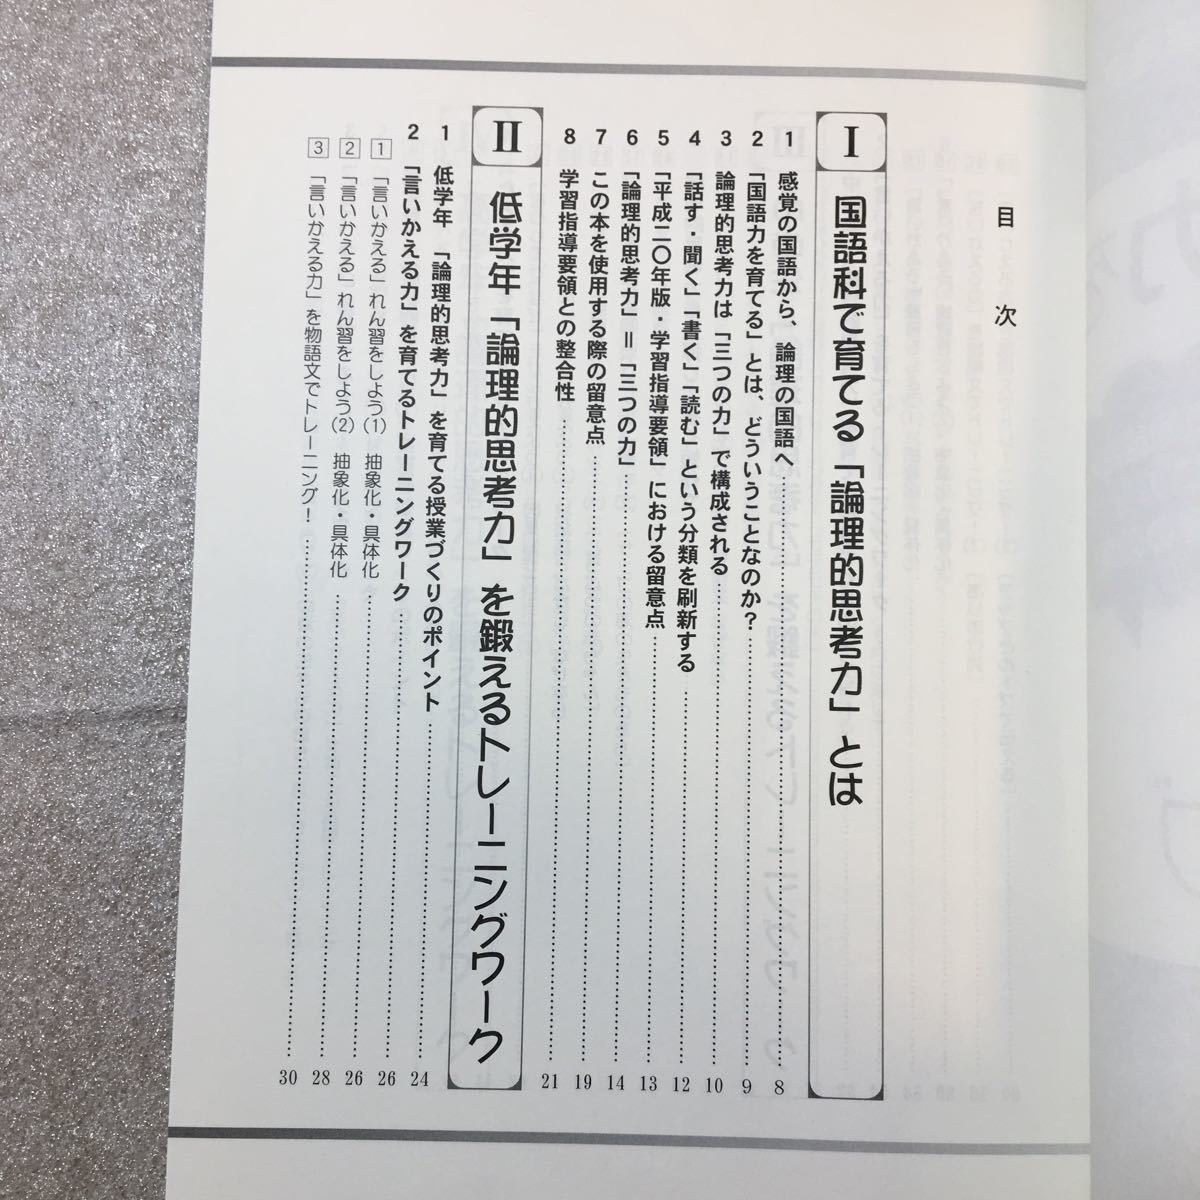 目次
Ⅰ 国語科で育てる「論理的思考力」とは
1 感覚の国語から、論理の国語へ 8
2 「国語力を育てる」とは、どういうことなのか？ 9
3 論理的思考力は「三つの力」で構成される 10
4 「話す・聞く」「書く」「読む」という分類を刷新する 12
5 「平成二〇年版・学習指導要領」における留意点 13
6 「論理的思考力」＝「三つの力」 14
7 この本を使用する際の留意点 19
8 学習指導要領との整合性 21
Ⅱ 低学年「論理的思考力」を鍛えるトレーニングワーク
1 低学年 「論理的思考力」を育てる授業づくりのポイント 24
2 「言いかえる力」を育てるトレーニングワーク 26
1 「言いかえる」れん習をしよう(1) 抽象化・具体化 26
2 「言いかえる」れん習をしよう(2) 抽象化・具体化 28
3 「言いかえる力」を物語文でトレーニング！ 30